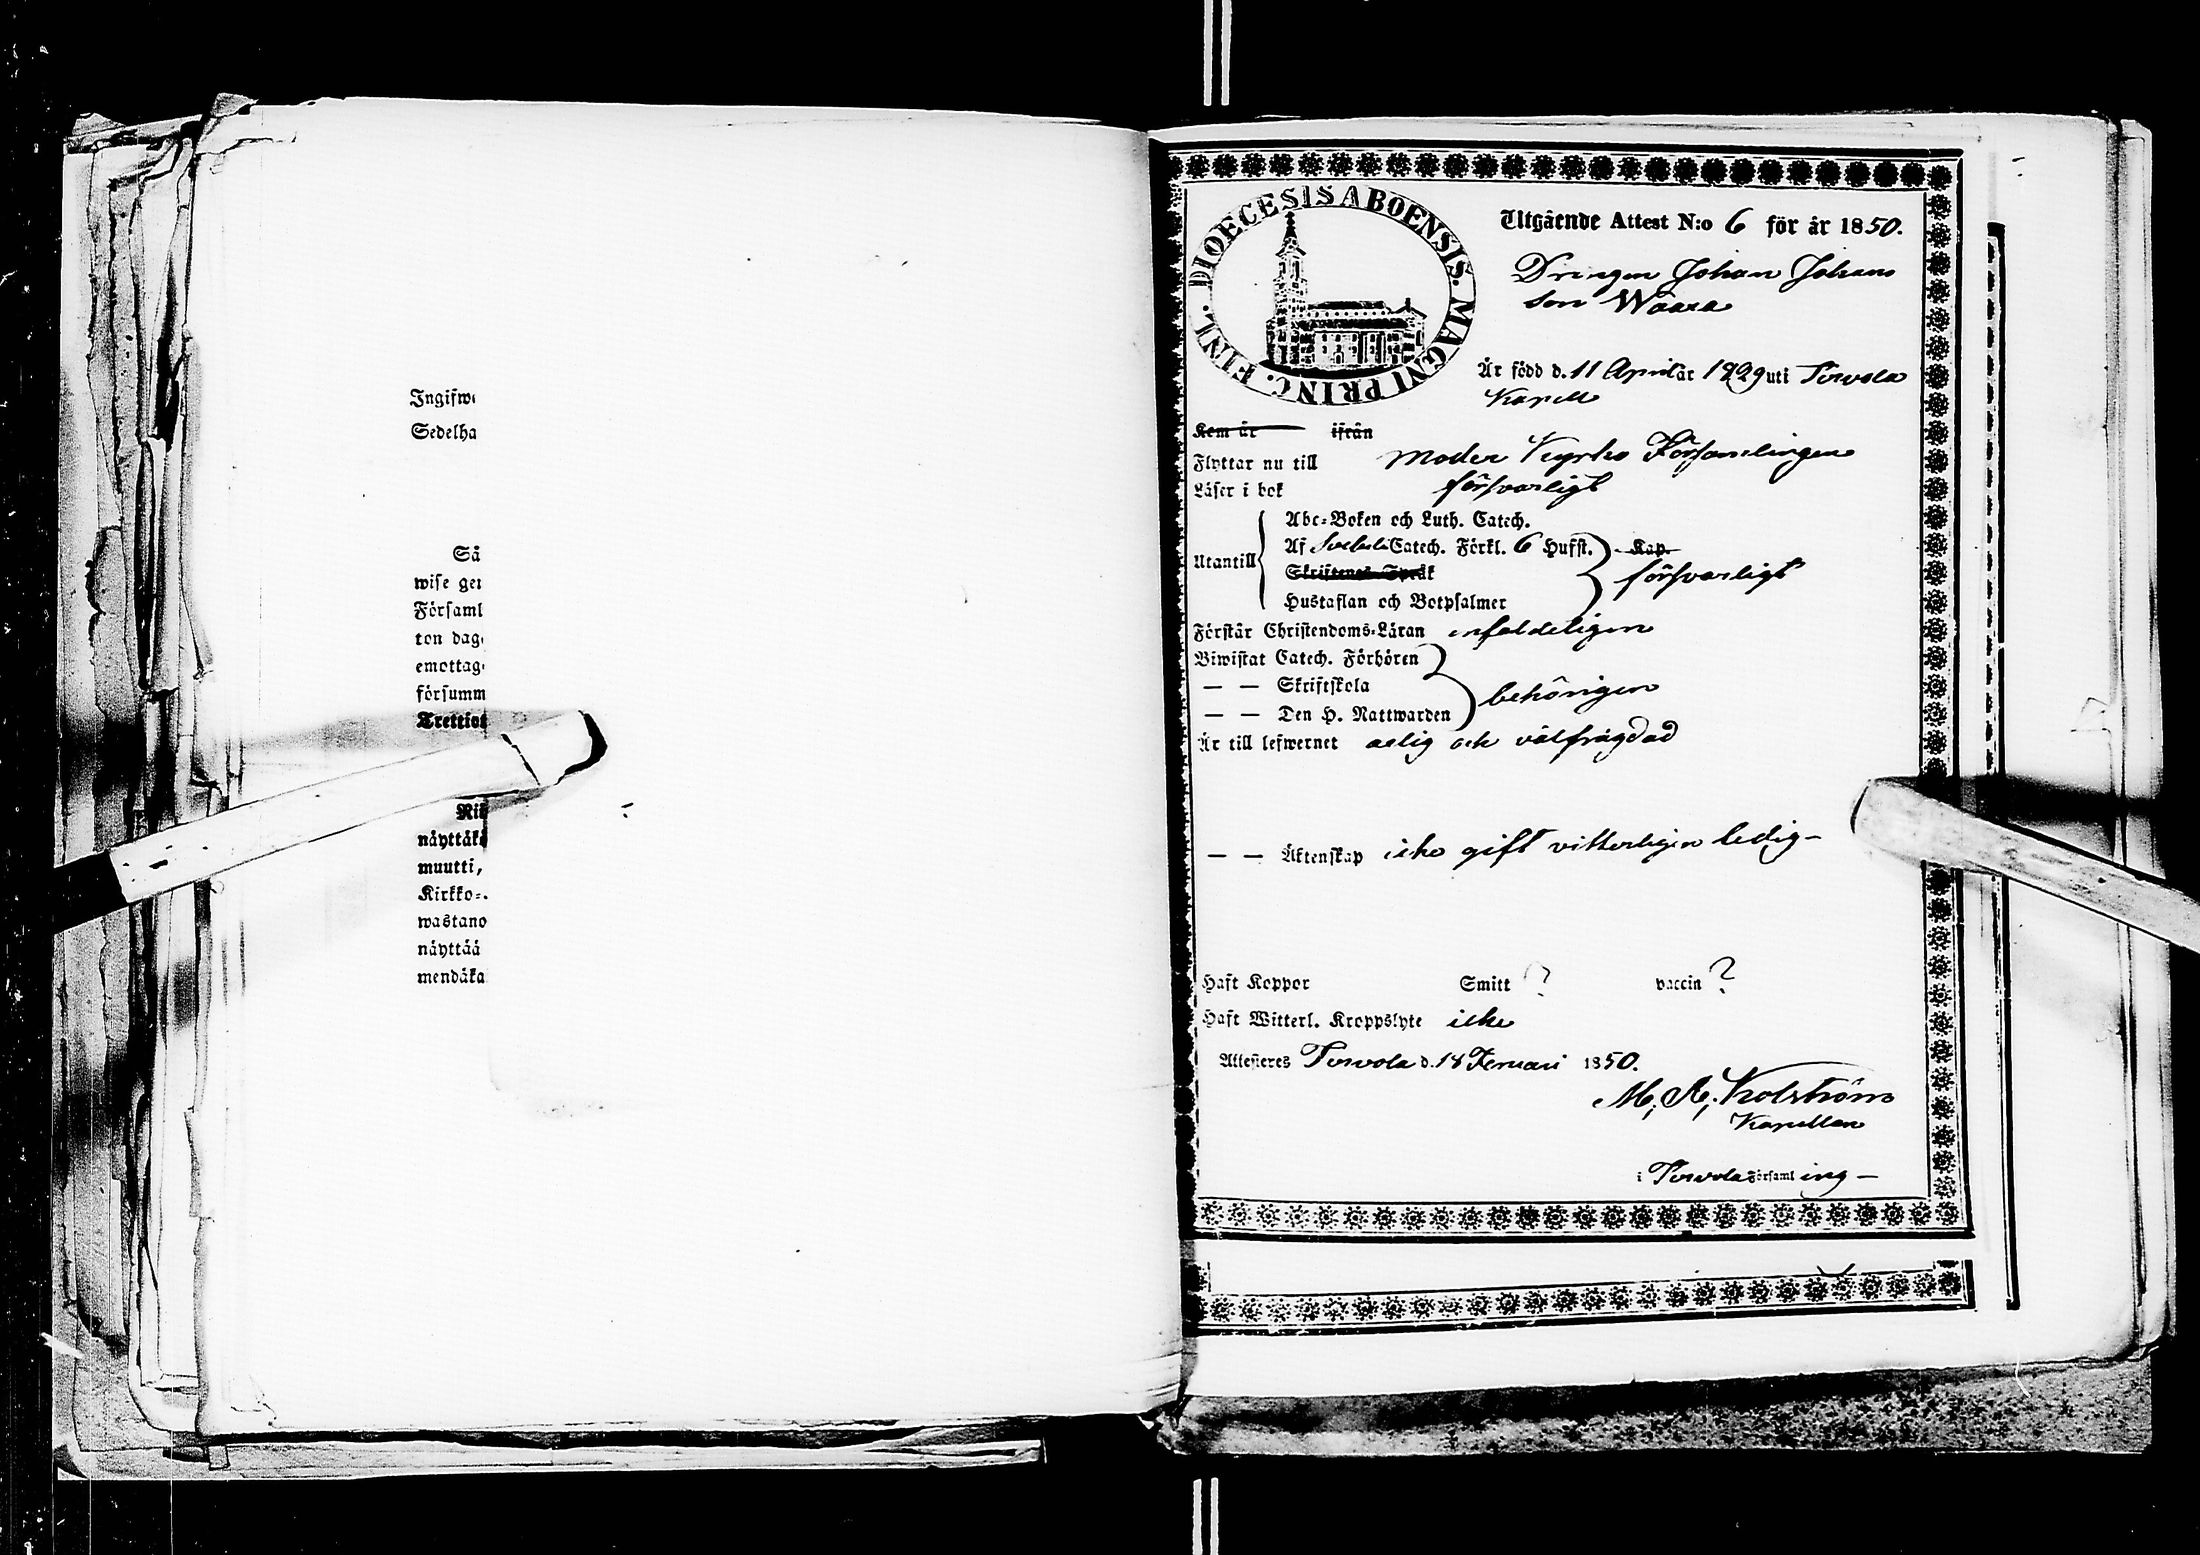 Ingifw
Sedelha
Så
wise ger
Församl
ton dag
emottag
försumm
Trettio
Nii
näyttäkö
muutti,
Kirkko-
wastano
näyttää
mendäkä
DIOECESIS ABOENSIS. MAGNI PRINC. FINL.
Utgående Attest N:o 6 för år 1850.
Drengen Johan Johans
son Waara
Är född d. 11 April år 1829 uti Tervola
Kapell
Kom år ifrån
Flyttar nu till Moder Kyrko Församlingen
Läser i bok försvarligt
Abc-Boken och Luth. Catech.
Af Svebeli Catech. Förkl. 6 Hufst. Kap.
Utantill Skriftenes Språk försvarligt
Hustaflan och Botpsalmer
Förstår Christendoms-Läran enfaldeligen
Biwistat Catech. Förhören
— — Skriftskola behörigen
— — Den H. Nattwarden
Är till lefwernet ärlig och välfrägdad
— — Äktenskap icke gift vitterligen ledig —
Haft Koppor Smitt ? vaccin ?
Haft Witterl. Kroppslyte icke
Attesteres Tervola d. 18 Feruari 1850.
M. A. Kolström
Kapellan
i Tervola Församling —